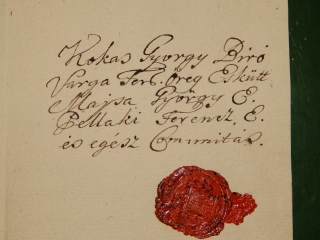 Kokas György Biró
Varga Ferb. Öreg Eskütt
Majsa György E.
Pellaki Ferencz, E.
és egész Communitás.